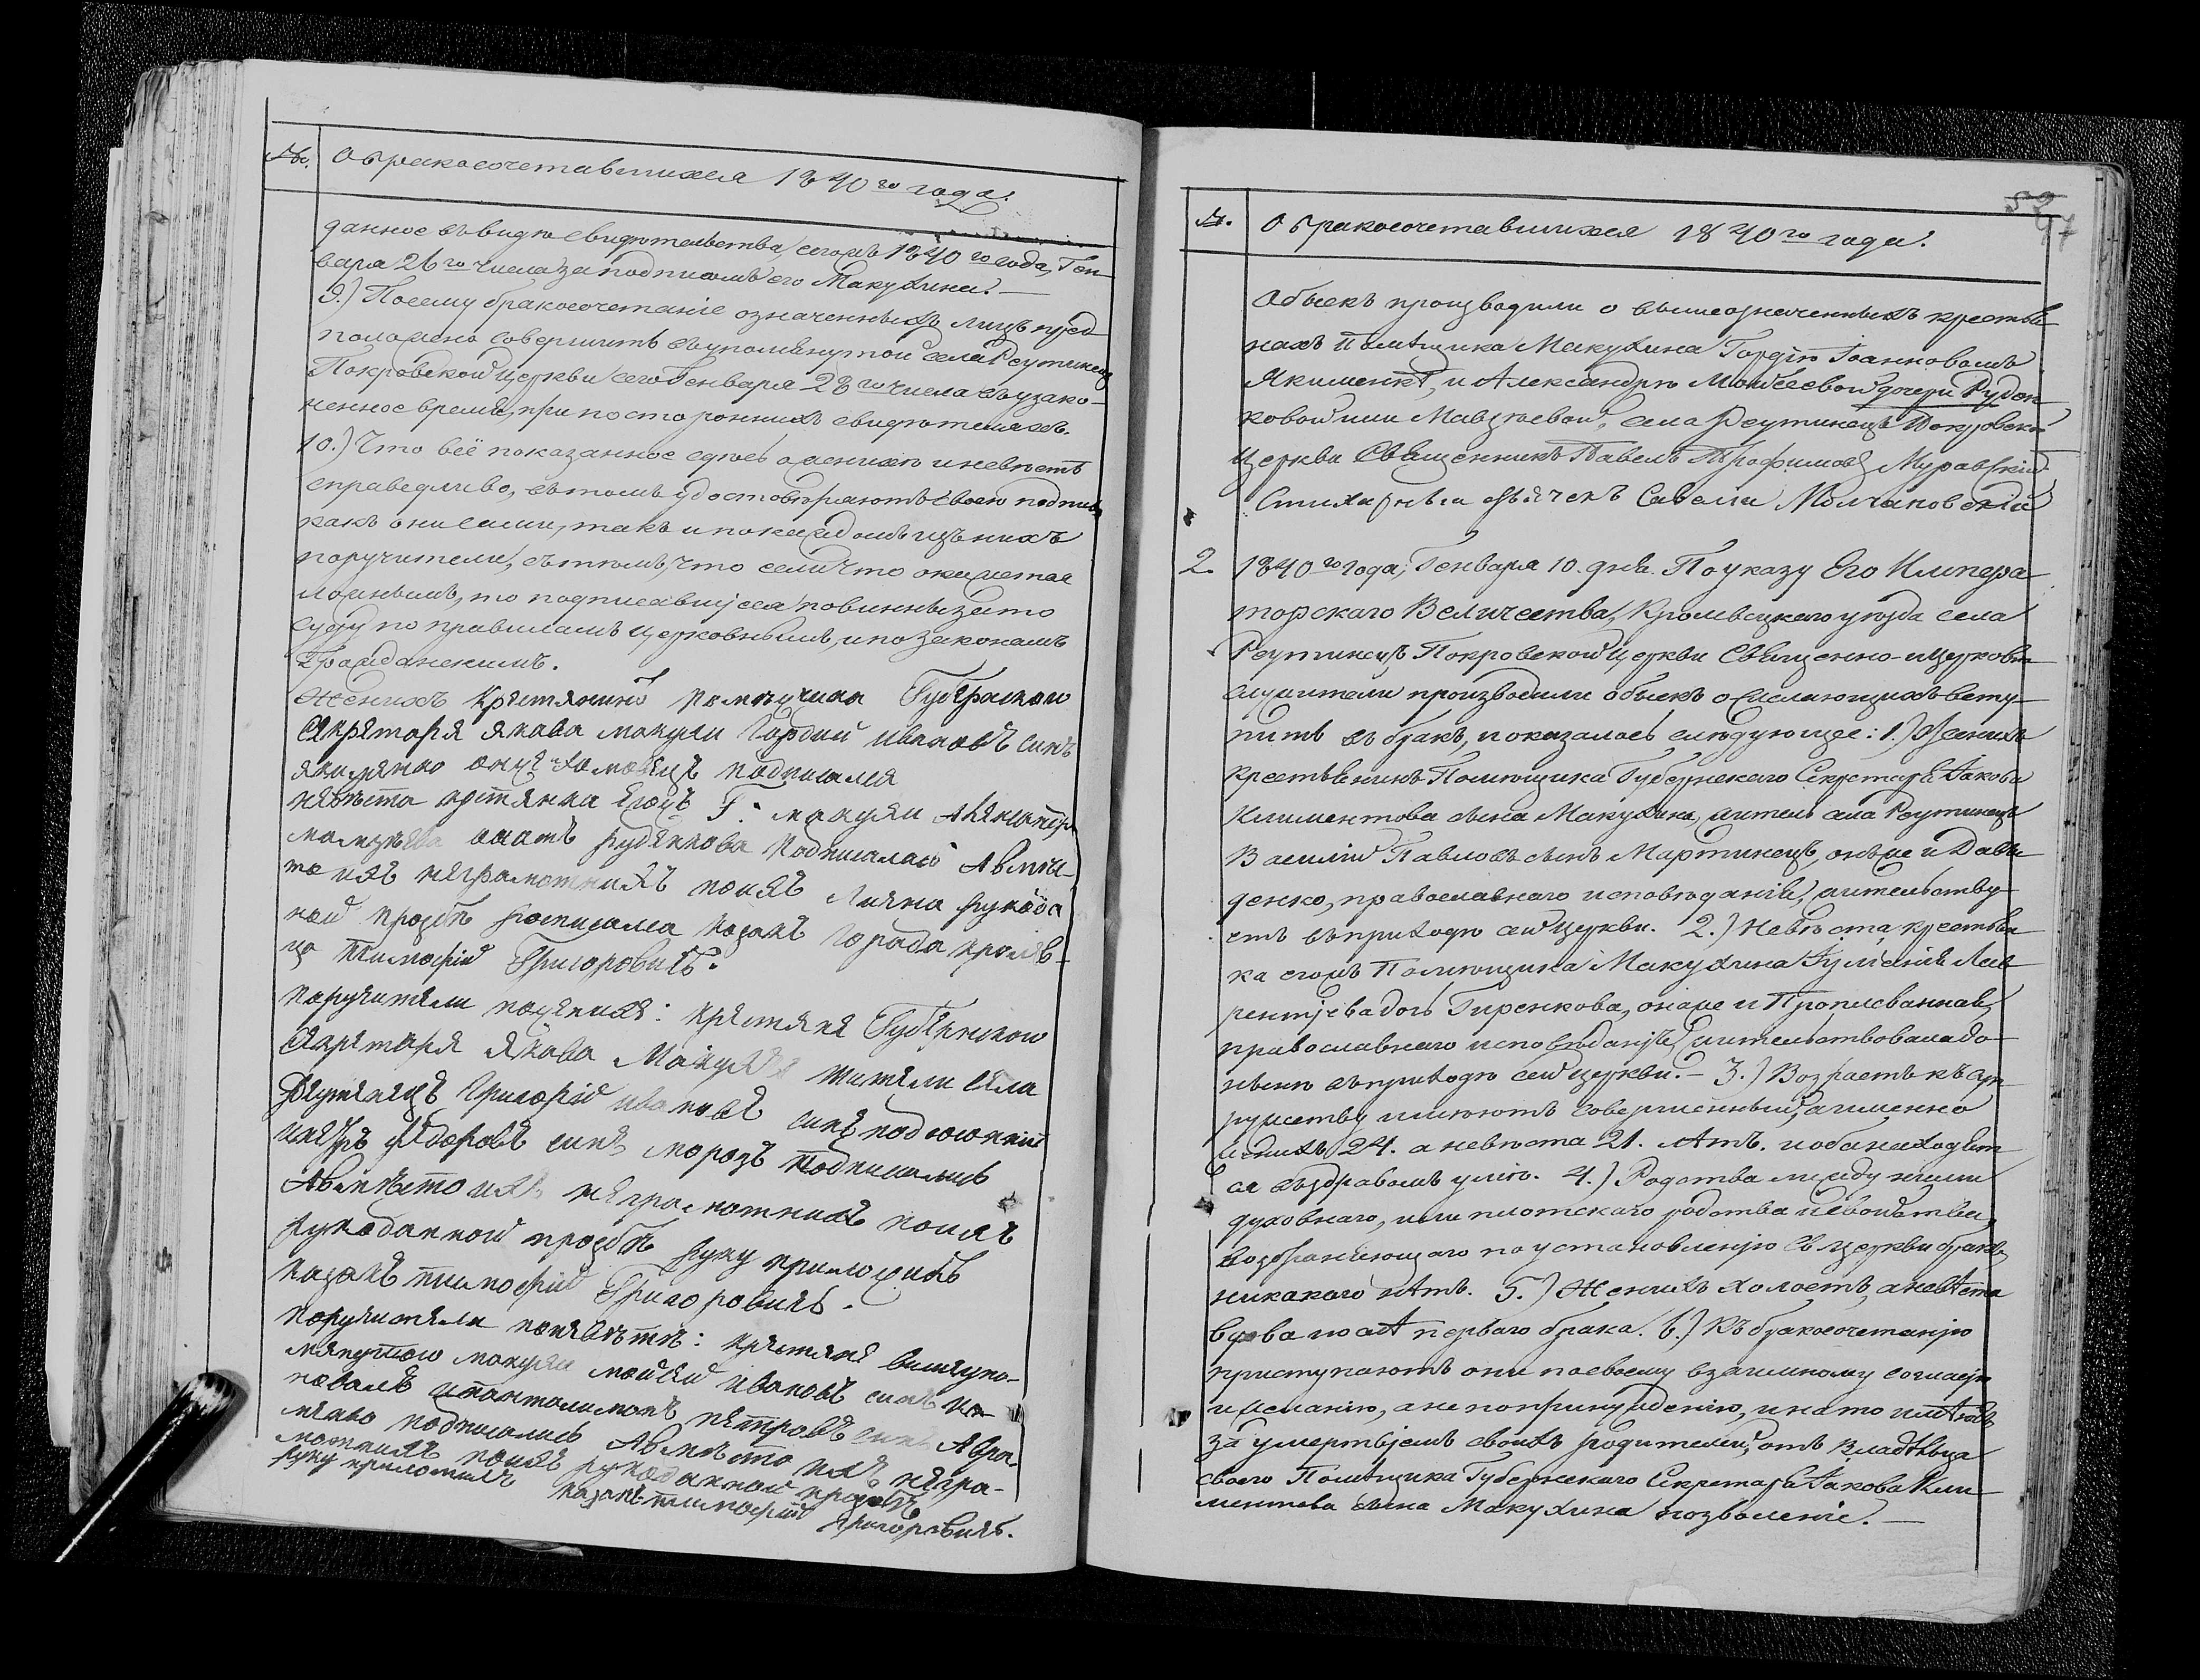 №.
О бракосочетавшихся 1840го года.
данное въ видѣ свидѣтельства, сегожъ 1840го года, Ген-
варя 26го числа за подписомъ его Макухина. —
9.) Посему бракосочетаніе означенныхъ лицъ пред-
положено совершить въ упомянутой села Реутинецъ
Покровской церкви сего Генваря 28го числа въ узако-
ненное время, при постороннихъ свидѣтеляхъ.
10.) Что всё показанное сдѣсь о женихѣ и невѣстѣ
справедливо, въ томъ удостовѣряютъ своею подписью
какъ они сами, такъ и по каждомъ изъ нихъ
поручители, съ тѣмъ, что если что окажется
ложнымъ, то подписавшіеся повинны за то
суду по правиламъ церковнымъ, и по законамъ
Гражданскимъ.
Женихъ крѣстянинъ помѣщика Губѣрнскаго
Сѣкрѣтаря Якова Макухи Гордий Ивановъ синъ
Якимѣнко подписался
нѣвѣста крѣстянка Г. Макухи
Рудѣнкова подписалась А вмѣс-
то ихъ нѣграмотнихъ поихъ рукода
ной прозбѣ росписался козакъ города кролѣв-
ца тимофій Григоровичъ.
Поручитѣли пожѣниху: крѣстянѣ Губѣрнского
Сѣкрѣтаря Якова Макухи житѣли сѣла
Рѣутинѣцъ Григорій Ивановъ синъ
Фѣдоровъ синъ морозъ подписались
А вмѣсто ихъ нѣграмотнихъ поихъ
рукоданной прозбѣ руку приложилъ
козакъ тимофій Григоровичъ.
Поручитѣли понѣвѣстѣ: крѣстянѣ вишѣупо-
мянутого макухи мойсей Ивановъ синъ ко-
валь и пантолимонъ пѣтровъ синъ Авра-
мѣнко подписались А вмѣсто ихъ нѣгра-
мотнихъ поихъ рукоданной прозбѣ
руку приложилъ козакъ тимофій Григоровичъ.
№.
О бракосочетавшихся 1840го года.
Обыскъ производили о вышеозначенныхъ крестья-
нахъ Помѣщика Макухина Гордію Іоанновомъ
Якименкѣ, и Александрѣ Мойсеевой дочери Руден-
ковой или Мавдзіевой, села Реутинецъ Покровской
церкви Священникъ Павелъ Трофимовъ Муравскій
Стихарный дьячекъ Савелий Молчановскій
2.
1840го года, Генваря 10. дня. По указу Его Импера-
торскаго Величества, Кролевецкаго уѣзда села
Реутинецъ Покровской церкви Священно-и церковно
служители производили обыскъ о желающихъ всту-
пить въ бракъ, и оказалось слѣдующее: 1.) Женихъ
крестьянинъ Помѣщика Губернскаго Секретаря Іакова
Климентова сына Макухина, житель села Реутинецъ
Василій Павловъ сынъ Мартинецъ, онъже и Давы-
денко, православнаго исповѣданія, жительству-
етъ въ приходѣ сей церкви. 2.) Невѣста, крестьян-
ка егожъ Помѣщика Макухина Гумѣнія Лав-
рентіева дочь Гиренкова, онаже и Прописванная,
православнаго исповѣданія, жительствовала до-
нынѣ въ приходѣ сей церкви. — 3.) Возрастъ къ суп-
ружеству имѣютъ совершенный, а именно
женихъ 24. а невѣста 21. лѣтъ. и оба находят-
ся въ здравомъ умѣ. 4.) Родства между ними
духовнаго, или плотскаго родства и свойства,
возбраняющаго по установленію Св. церкви бракъ,
никакого нѣтъ. 5.) Женихъ холостъ, а невѣста
вдова послѣ перваго брака. 6.) Къ бракосочетанію
приступаютъ они по своему взаимному согласію
и желанію, а не по принужденію, и на то имѣютъ
за умертвіемъ своихъ родителей, отъ Владѣльца
своего Помѣщика Губернскаго Секретаря Іакова Кли-
ментова сына Макухина позволеніе. —